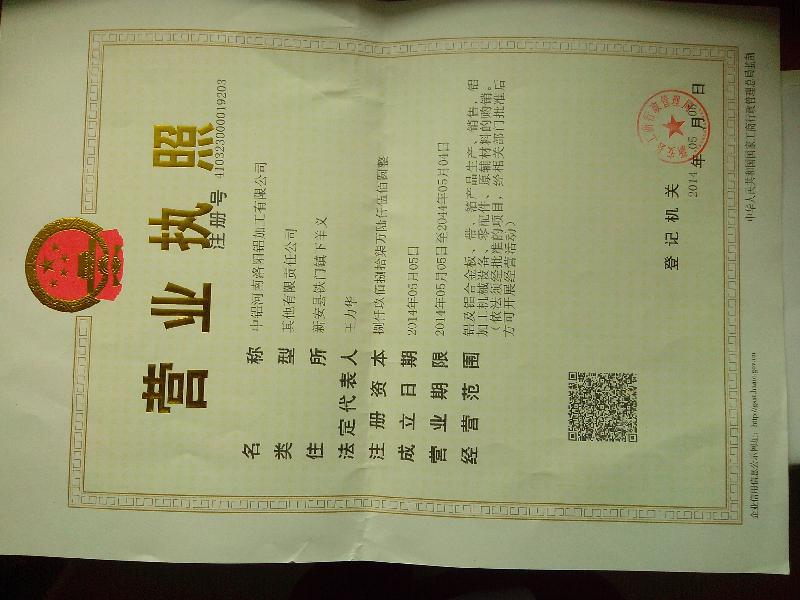 营业执照
注册号 410323000019203
名称 中铝河南洛阳铝加工有限公司
类型 其他有限责任公司
住所 新安县铁门镇下羊义
法定代表人 王力华
注册资本 捌仟玖佰捌拾柒万陆仟伍佰圆整
成立日期 2014年05月05日
营业期限 2014年05月05日至2044年05月04日
经营范围 铝及铝合金板、带、箔产品生产、销售,铝
加工机械设备、零配件、原辅材料的购销。
(依法须经批准的项目,经相关部门批准后
方可开展经营活动)
登记机关
2014年05月05日
企业信用信息公示网址:
中华人民共和国国家工商行政管理总局监制